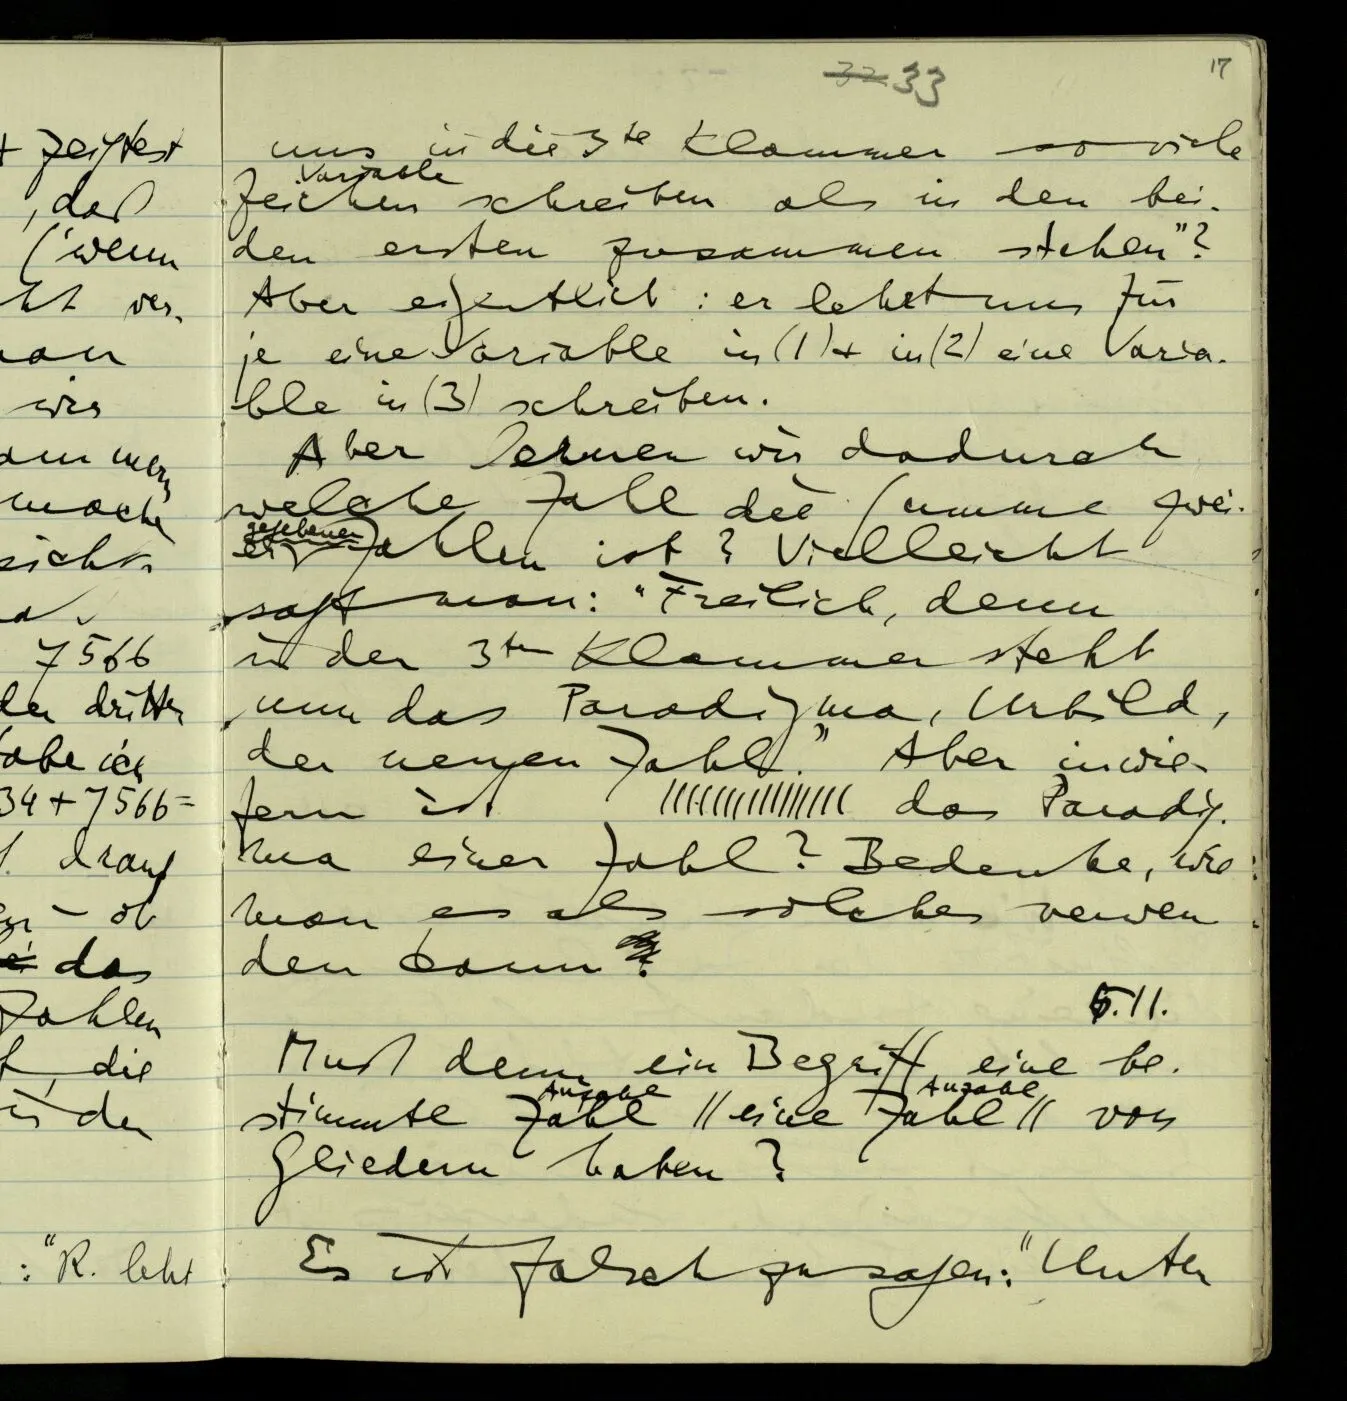 32 33
17
uns in die 3te Klammer so viele
Variable
Zeichen schreiben als in den bei-
den ersten zusammen stehen"?
Aber eigentlich: er lehrt uns für
je eine Variable in (1) + in (2) eine Varia-
ble in (3) schreiben.
Aber lernen wir dadurch
welche Zahl die Summe zwei-
gegebener
er Zahlen ist? Vielleicht
sagt man: "Freilich, denn
in der 3ten Klammer steht
nun das Paradigma, Urbild,
der neuen Zahl." Aber inwie-
fern ist ||||||||||||||| das Paradig-
ma einer Zahl? Bedenke, wie
man es als solches verwen
den kann.
6.11.
Muß denn ein Begriff eine be-
Anzahl Anzahl
stimmte Zahl // eine Zahl // von
Gliedern haben?
Es ist falsch zu sagen: "Unter
+ zeigtest
, daß
( wenn
ver-
wir
7566
der dritten
habe ich
34 + 7566 =
drauf
– ob
das
Zahlen
die
in der
: "R. lehrt